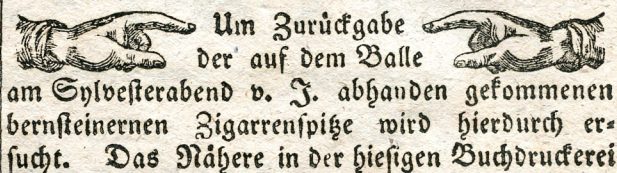 Um Zurückgabe
der auf dem Balle
am Sylvesterabend v. J. abhanden gekommenen
bernsteinernen Zigarrenspitze wird hierdurch er-
sucht. Das Nähere in der hiesigen Buchdruckerei